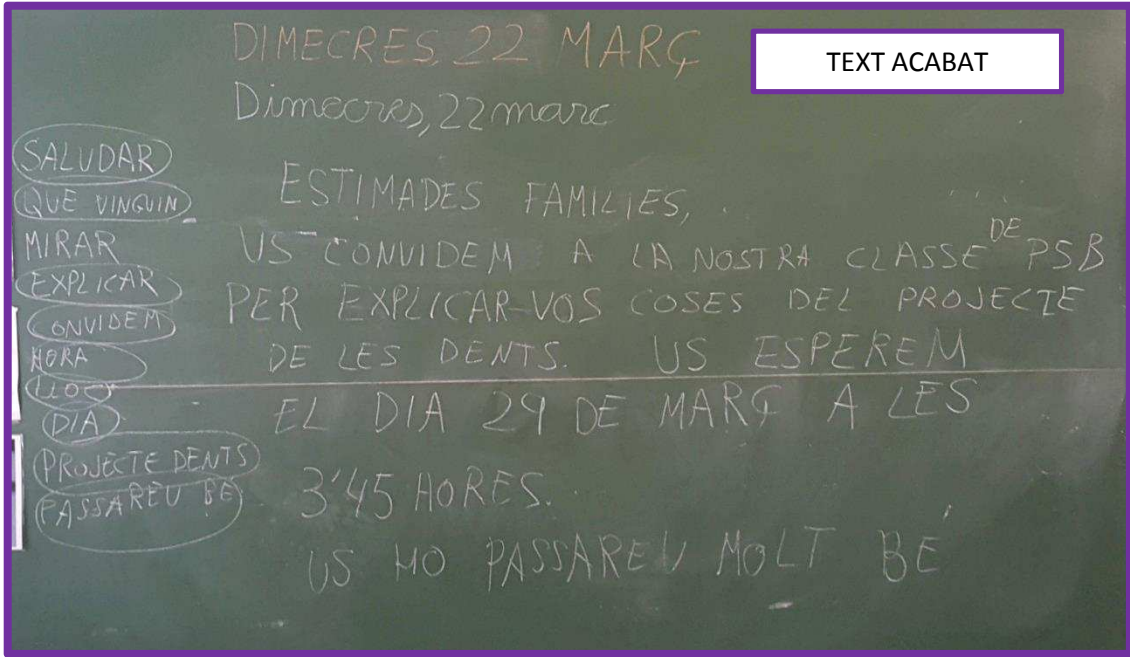 DIMECRES, 22 MARÇ
TEXT ACABAT
Dimecres, 22 març
SALUDAR
QUE VINGUIN
MIRAR
EXPLICAR
CONVIDEM
HORA
LLOC
DIA
PROJECTE DENTS
PASSAREU BE
ESTIMADES FAMILIES,
US CONVIDEM A LA NOSTRA CLASSE DE P5B
PER EXPLICAR-VOS COSES DEL PROJECTE
DE LES DENTS. US ESPEREM
EL DIA 29 DE MARÇ A LES
3'45 HORES.
US HO PASSAREU MOLT BÉ